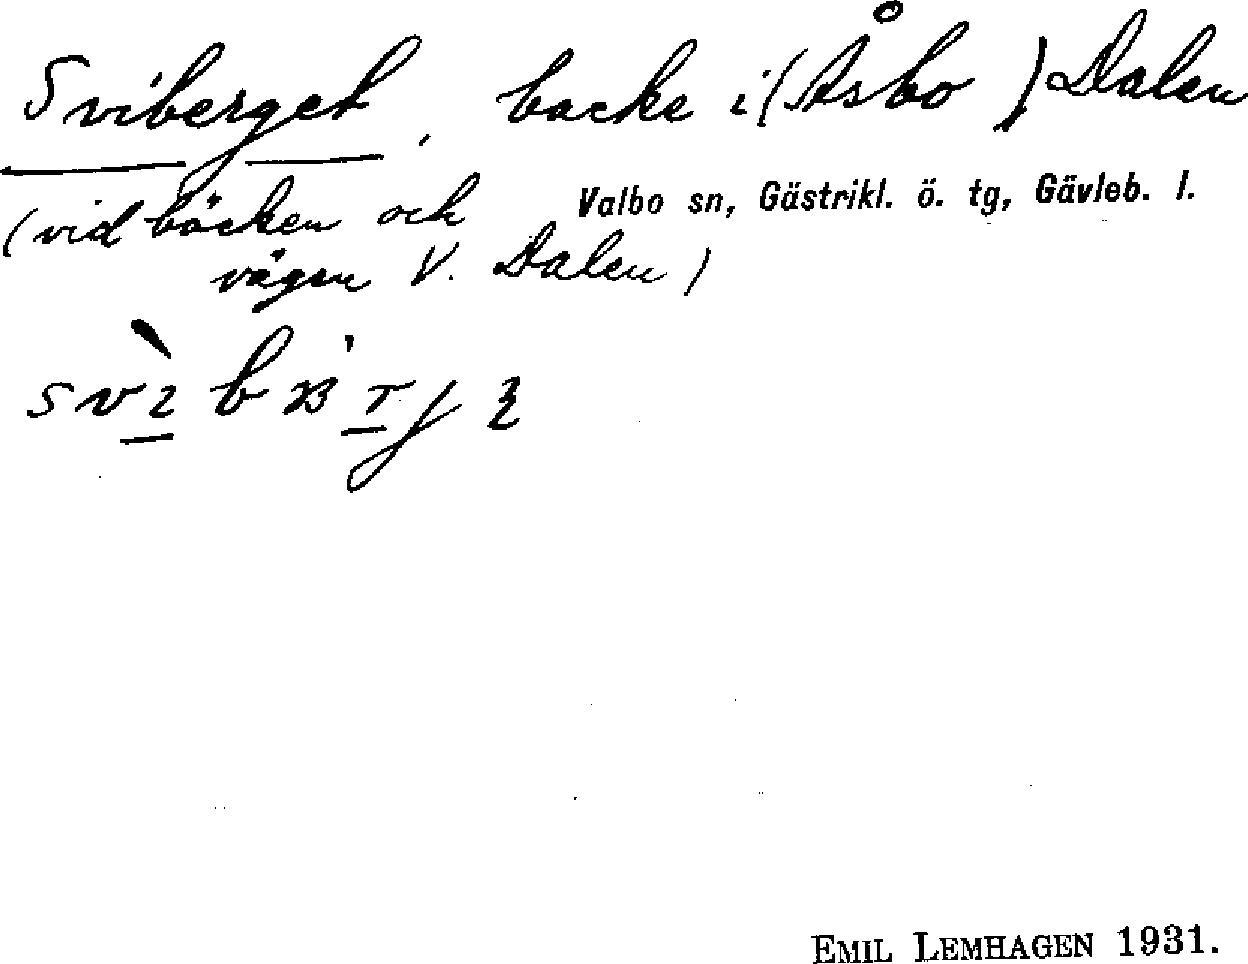 Sviberget, backe i (Åsbo) Dalen
(vid bäcken och Valbo sn, Gästrikl. ö. tg, Gävleb. l.
vägen V. Dalen)
EMIL LEMHAGEN 1931.